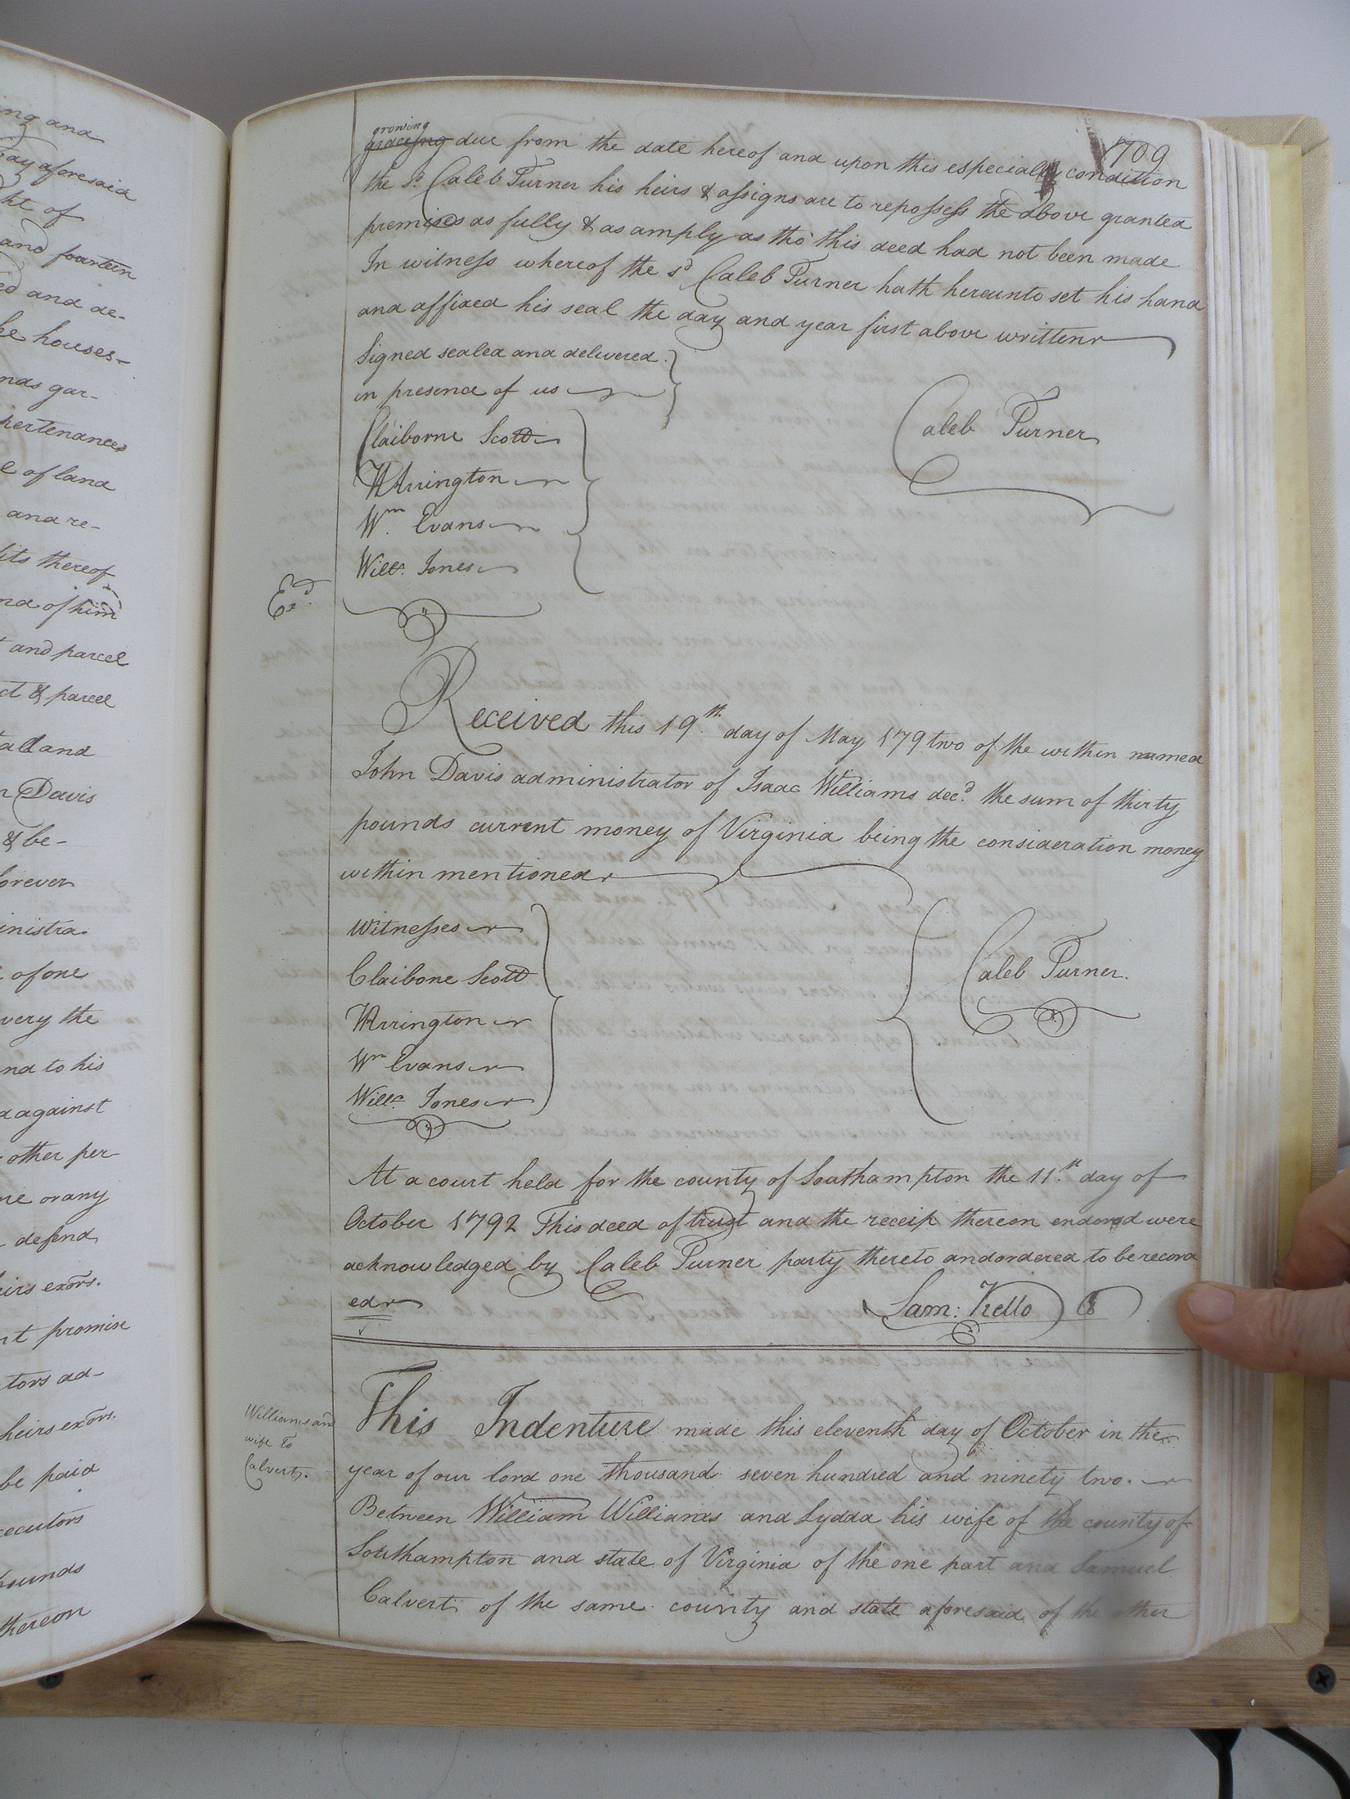 ing and
day aforesaid
ht of
and fourteen
ed and de-
he houses
nds gar-
pertenances
e of land
and re-
its thereof
nd of him
and parcel
ct & parcel
all and
n Davis
& be-
forever
inistra
of one
very the
nd to his
d against
other per
me or any
defend
eirs exōrs.
nt promise
tors ad-
heirs exōrs.
be paid
ecutors
pounds
thereon
709
growing
due from the date hereof and upon this especial condition
the sd. Caleb Turner his heirs & assigns are to repossess the above granted
premises as fully & as amply as tho' this deed had not been made
In witness whereof the sd Caleb Turner hath hereunto set his hand
and affixed his seal the day and year first above written
Signed sealed and delivered
in presence of us
Claiborne Scott
WArrington
Wm. Evans
Caleb Turner
Jones
Exd.
Received this 19th. day of May 179two of the within named
John Davis administrator of Isaac Williams decd. the sum of thirty
pounds current money of Virginia being the consideration money
within mentioned
Witnesses
Claibone Scott
WArrington
Wm Evans
Jones
Caleb Turner.
At a court held for the county of Southampton the 11.th day of
October 1792 This deed of trust and the receip thereon endorsd were
acknowledged by Caleb Turner party thereto and ordered to be record
ed
Sam: Kello C
Williams and
wife To
Calvert.
This Indenture made this eleventh day of October in the
year of our lord one thousand seven hundred and ninety two.
Between William Williams and Lydda his wife of the county of
Southampton and state of Virginia of the one part and Samuel
Calvert of the same county and state aforesaid of the other